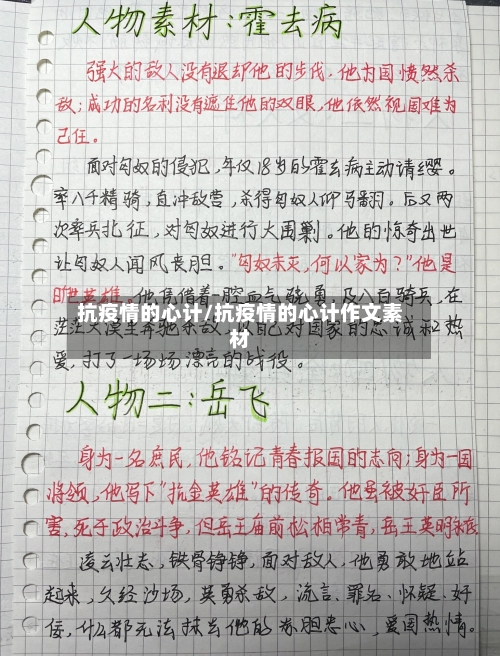 人物素材:霍去病
强大的敌人没有退却他的步伐,他为国愤然杀
敌;成功的名利没有遮住他的双眼,他依然视国难为
己任。
面对匈奴的侵犯,年仅18岁的霍去病主动请缨。
率八千精骑,直冲敌营,杀得匈奴人仰马翻。后又两
次率兵北征,对匈奴进行大围剿。他的惊奇出世
让匈奴人闻风丧胆。"匈奴未灭,何以家为?"他是
英雄。他凭借着一腔血气骁勇及八百骑兵,在
抗疫情的心计/抗疫情的心计作文素
材
茫茫大漠里奔驰杀敌,以自己对国家的忠诚和热
爱,打了一场场漂亮的战役。
人物二:岳飞
身为一名庶民,他铭记青春报国的志向;身为一国
将领,他写下"抗金英雄"的传奇。他虽被奸臣所
害,死于政治斗争,但岳王庙前松柏常青,岳王英明
凌云壮志,铁骨铮铮,面对敌人,他勇敢地站
起来,久经沙场,英勇杀敌,流言、罪名、怀疑、奸
佞,什么都无法抹去他的赤胆忠心,爱国热情。